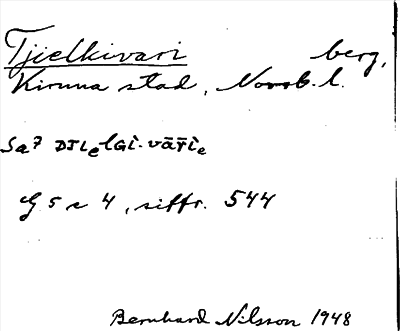 Tjielkivari berg,
Kiruna stad, Norrb. l.
Saꝫ
G 5 c 4, siffr. 544
Bernhard Nilsson 1948